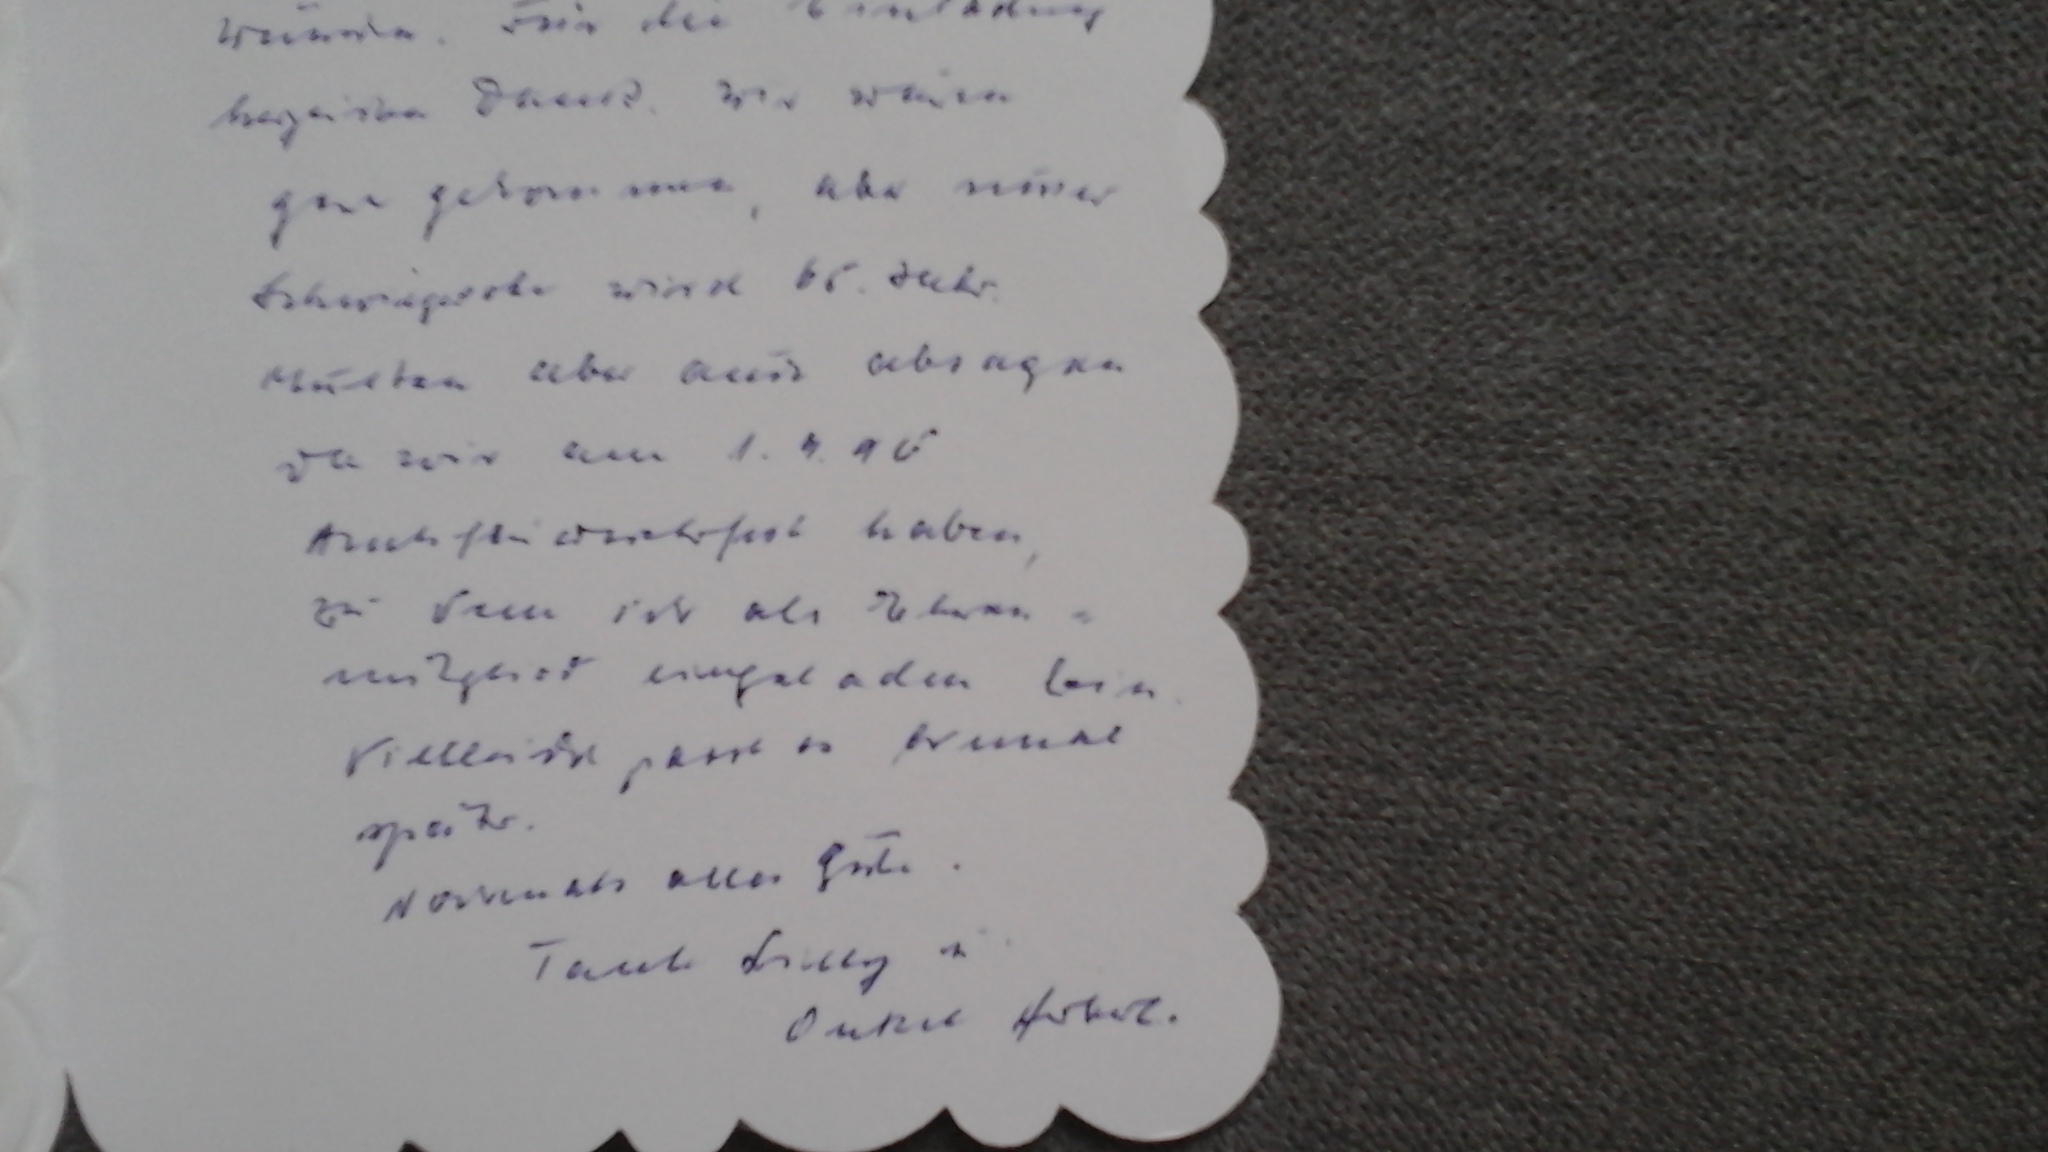 wünschen. Für die Einladung
herzlichen Dank. Wir wären
gern gekommen, aber unser
Schwiegersohn wird 65. Jahr.
Mußten aber auch absagen
da wir am 1.9.96
haben,
zu dem ich als Ehren-
mitglied eingeladen bin.
Vielleicht passt es einmal
später.
Nochmals alles Gute.
Tante u.
Onkel